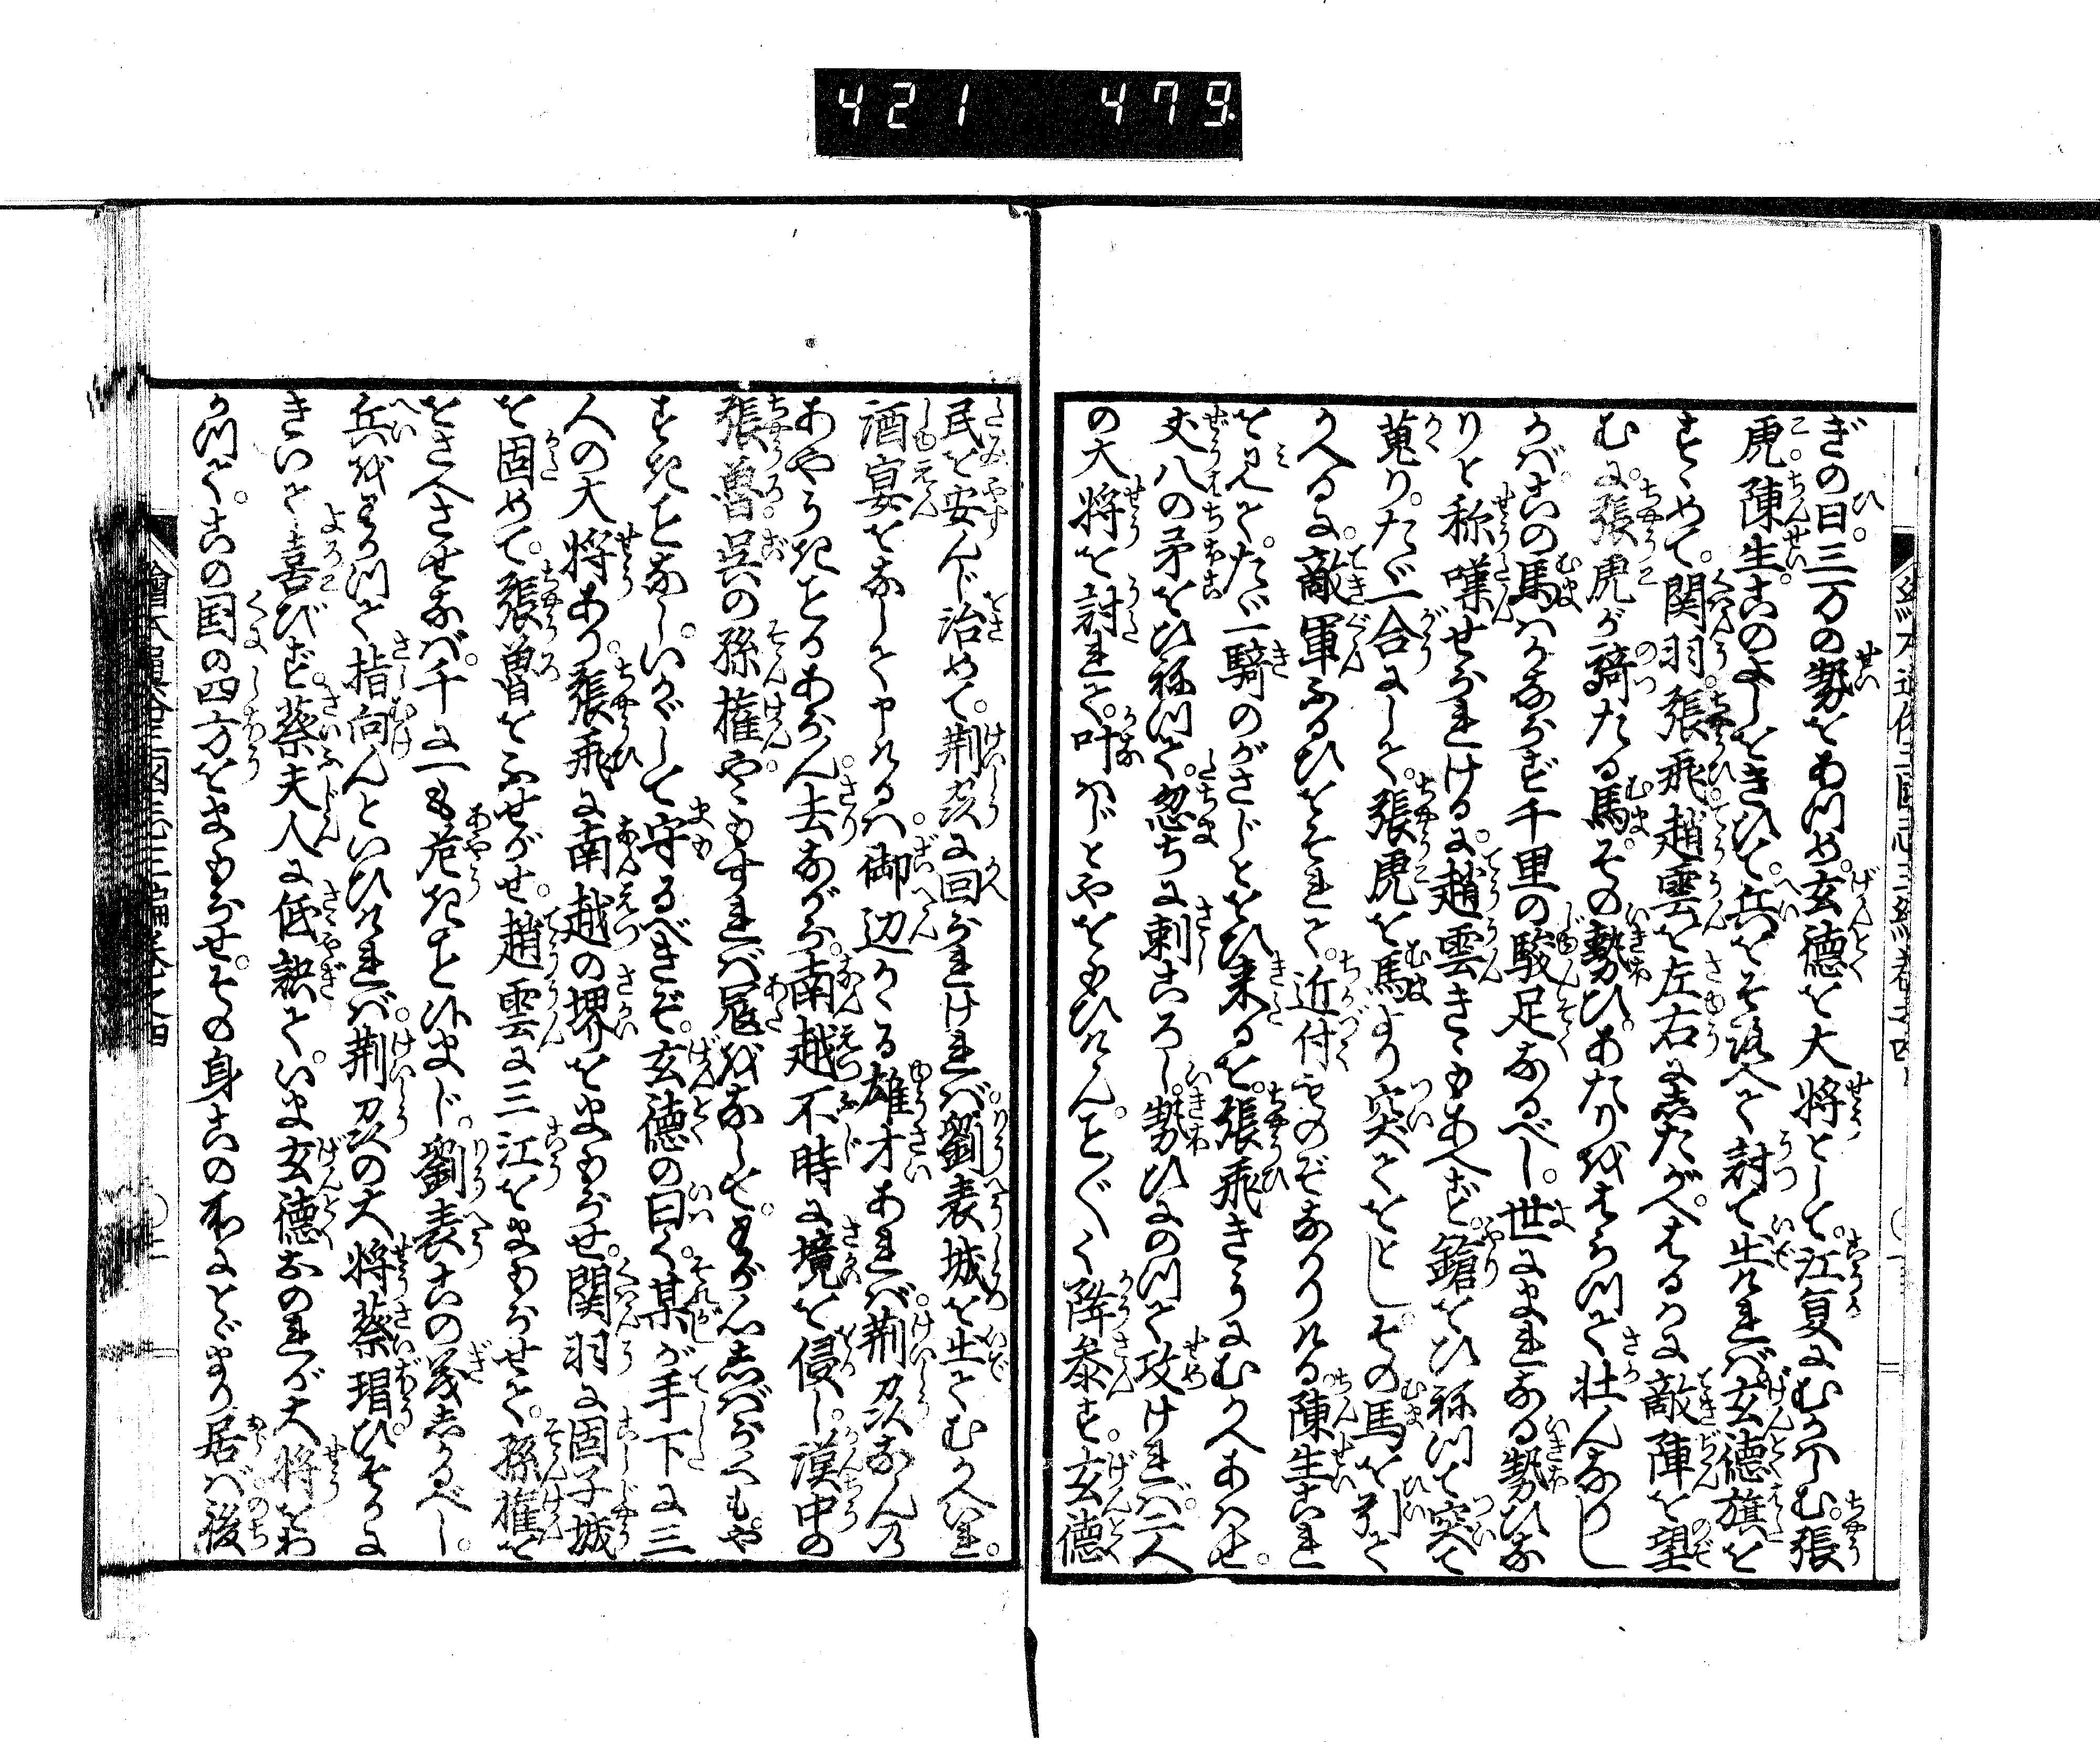 421 479
ぎの日。三万の勢をあつめ。玄徳を大将として。江夏にむかハしむ。張
虎。陳生。このよしをきひて。兵をそろへて討て出けれバ。玄徳旗を
すゝめて。関羽。張飛。趙雲を左右にしたがへ。はるかに敵陣を望
むに。張虎が騎たる馬。その勢ひ。あたりをはらつて壮んなりし
かバ。この馬ハかならず千里の駿足なるべし。世にまれなる勢ひな
りと称嘆せられけるに。趙雲きゝもあへず。鎗をひねつて突て
蒐り。たゞ一合にして。張虎を馬より突ておとし。その馬を引て
かへるに。敵軍ふるひをそれて。近付ものぞなかりける。陳生これ
を見て。たゞ一騎のがさじとをひ来るを。張飛きうにむかへあハせ。
丈八の矛をひねつて。忽ちに刺ころし。勢ひにのつて攻けれバ。二人
の大将を討れて。叶ハじとやをもひけん。こと〴〵く降参す。玄徳
民を安んじ治めて。荊州に回られけれバ。劉表城を出てむかへ。
酒宴をなしてやけるハ。御辺かゝる雄才あれバ。荊州なんの
あやうきことあらん。去ながら。南越不時に境を侵し。漢中の
張魯。呉の孫権。やゝもすれバ寇をなして。わが心しばらくもや
すきことなし。いかゞして守るべきぞ。玄徳の曰く。某が手下に三
人の大将あり。張飛に南越の堺をまもらせ。関羽に固子城
を固めて。張魯をふせがせ。趙雲に三江をまもらせて。孫権を
をさへさせなバ。千に一も危きこと候まじ。劉表この義しかるべし。
兵をわかつて指向んといひけれバ。荊州の大将蔡瑁。ひそかに
きいて喜びず。蔡夫人に低訣て。いま玄徳おのれが大将をわ
かつて。この国の四方をまもらせ。その身この所にとゞまり居バ後